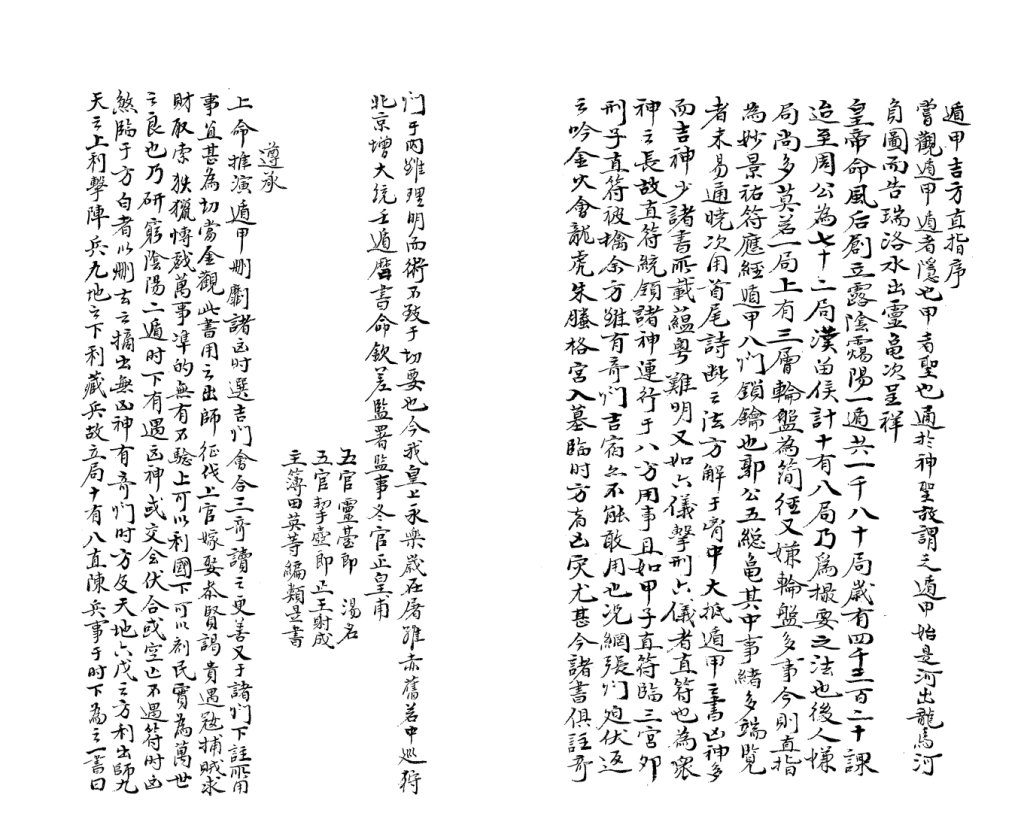 遁甲吉方直指序
嘗觀遁甲遁者隱也甲者聖也通於神聖故謂之遁甲始是河出龍馬河
負圖而告瑞洛水出靈龜次呈祥
皇帝命風后創立露陰霭陽一遍共一千八十局歲有四千三百二十課
迨至周公為七十二局漢留侯計十有八局乃為撮要之法也後人慊
局尚多莫若一局上有三層輪盤為简徑又嫌輪盤多事今則直指
為妙景祐符應經遁甲八们鎖鑰也郭公五總龜其中事緒多端覽
者未易通曉次用首尾詩訣之法方解于胷中大抵遁甲之書凶神多
而吉神少諸書所載蘊粤難明又如六儀擊刑六儀者直符也為衆
神之長故直符統領諸神運行于八方用事且如甲子直符臨三宮卯
刑子直符被擒余方雖有奇们吉宿亦不能敢用也况網張们迫伏返
之吟金火會龍虎朱螣格宮入墓臨时方者凶灾尤甚今諸書俱註奇
们于内雖理明而術不致于切要也今我皇上永樂歲在屠維赤舊若中巡狩
北京增大统壬遁曆書命欽差監署監事冬官正皇甫
五官靈臺郎 湯名
五官挈壺郎正王財成
主簿田英等編類是書
遵承
上命推演遁甲删劉諸凶时選吉们會合三奇讀之更善又于諸们下註所用
事宜甚為切當余觀此書用之出師征伐上官嫁娶恭賢謁貴遇寇捕贼求
財取索狩獵博戲萬事準的無有不驗上可以利國下可以利民實為萬世
之良也乃研窮陰陽二遁时下有遇凶神或交会伏合或空亡不遇符时凶
煞臨于方白者以删去之摘出無凶神有奇们时方及天地六戊之方利出師九
天之上利擊陣兵九地之下利藏兵故立局十有八直陳兵事于时下為之一書曰